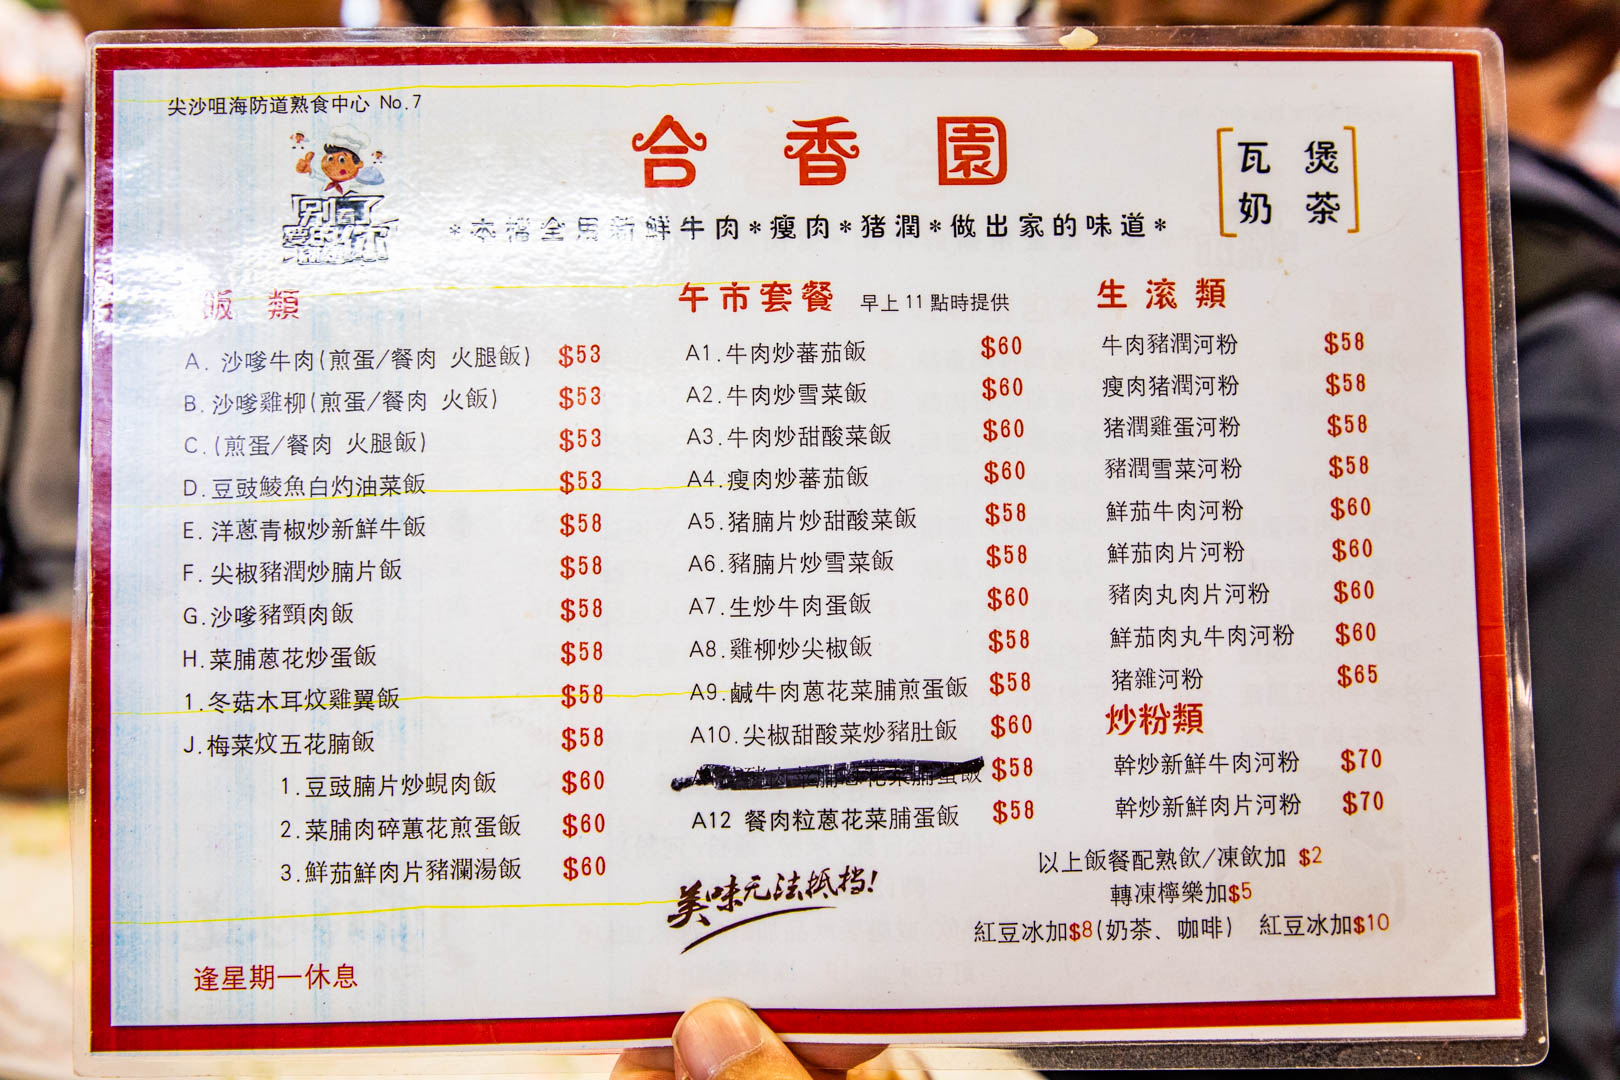 尖沙咀海防道熟食中心 No.7
合香園
瓦煲
奶茶
*本檔全用新鮮牛肉*瘦肉*猪潤*做出家的味道*
飯類
A. 沙嗲牛肉(煎蛋/餐肉 火腿飯) $53
B. 沙嗲雞柳(煎蛋/餐肉 火飯) $53
C. (煎蛋/餐肉 火腿飯) $53
D. 豆豉鯪魚白灼油菜飯 $53
E. 洋蔥青椒炒新鮮牛飯 $58
F. 尖椒豬潤炒腩片飯 $58
G. 沙嗲豬頸肉飯 $58
H. 菜脯蔥花炒蛋飯 $58
1. 冬菇木耳炆雞翼飯 $58
J. 梅菜炆五花腩飯 $58
1. 豆豉腩片炒蜆肉飯 $60
2. 菜脯肉碎蔥花煎蛋飯 $60
3. 鮮茄鮮肉片豬瀾湯飯 $60
逢星期一休息
午市套餐 早上11點時提供
A1. 牛肉炒蕃茄飯 $60
A2. 牛肉炒雪菜飯 $60
A3. 牛肉炒甜酸菜飯 $60
A4. 瘦肉炒蕃茄飯 $60
A5. 猪腩片炒甜酸菜飯 $58
A6. 豬腩片炒雪菜飯 $58
A7. 生炒牛肉蛋飯 $60
A8. 雞柳炒尖椒飯 $58
A9. 鹹牛肉蔥花菜脯煎蛋飯 $58
A10. 尖椒甜酸菜炒豬肚飯 $60
$58
A12 餐肉粒蔥花菜脯蛋飯 $58
美味无法抵挡!
生滚類
牛肉豬潤河粉 $58
瘦肉猪潤河粉 $58
猪潤雞蛋河粉 $58
豬潤雪菜河粉 $58
鮮茄牛肉河粉 $60
鮮茄肉片河粉 $60
豬肉丸肉片河粉 $60
鮮茄肉丸牛肉河粉 $60
猪雜河粉 $65
炒粉類
幹炒新鮮牛肉河粉 $70
幹炒新鮮肉片河粉 $70
以上飯餐配熟飲/凍飲加 $2
轉凍檸樂加$5
紅豆冰加$8(奶茶、咖啡) 紅豆冰加$10